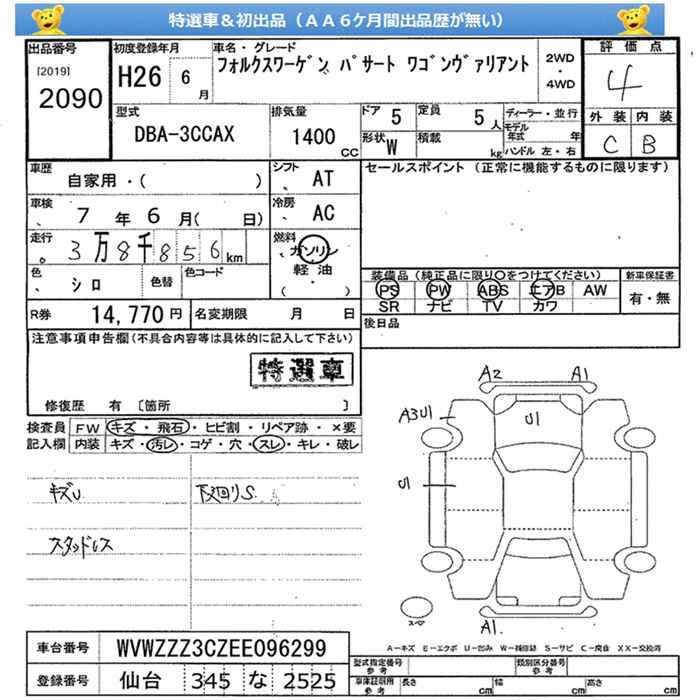 特選車＆初出品（ＡＡ６ケ月間出品歴が無い）
出品番号 初度登録年月 車名・グレード 評価点
[2019] 2090 H26 6月 フォルクスワーゲン パサート ワゴンヴァリアント 2WD・4WD 4
型式 排気量 ドア 5 定員 5人 ディーラー・並行 外装 内装
DBA-3CCAX 1400cc 形状 W 積載 kg モデル年式 年 C B
ハンドル 左・右
車歴 自家用・( ) シフト AT セールスポイント（正常に機能するものに限ります）
車検 7年 6月( 日) 冷房 AC
走行 3万8千856km 燃料 ガソリン
軽油・( )
色 シロ 色替 色コード 装備品（純正品に限り○をつけてください） 新車保証書
PS PW ABS エアB AW 有・無
SR ナビ TV カワ
R券 14,770円 名変期限 月 日 後日品
注意事項申告欄(不具合内容等は具体的に記入して下さい)
特選車
修復歴 有 〔箇所 〕
検査員 FW キズ・飛石・ヒビ割・リペア跡・×要
記入欄 内装 キズ・汚レ・コゲ・穴・スレ・キレ・破レ
キズU 下廻りS
スタッドレス
A2 A1
A3U1 U1
U1
スペア
A1
A-キズ E-エクボ U-凹み W-補修跡 S-サビ C-腐食 XX-交換済
車台番号 WVWZZZ3CZEE096299
登録番号 仙台 345 な 2525
型式指定番号 参考 類別区分番号 参考
車庫証明用 参考 長さ cm 幅 cm 高さ cm